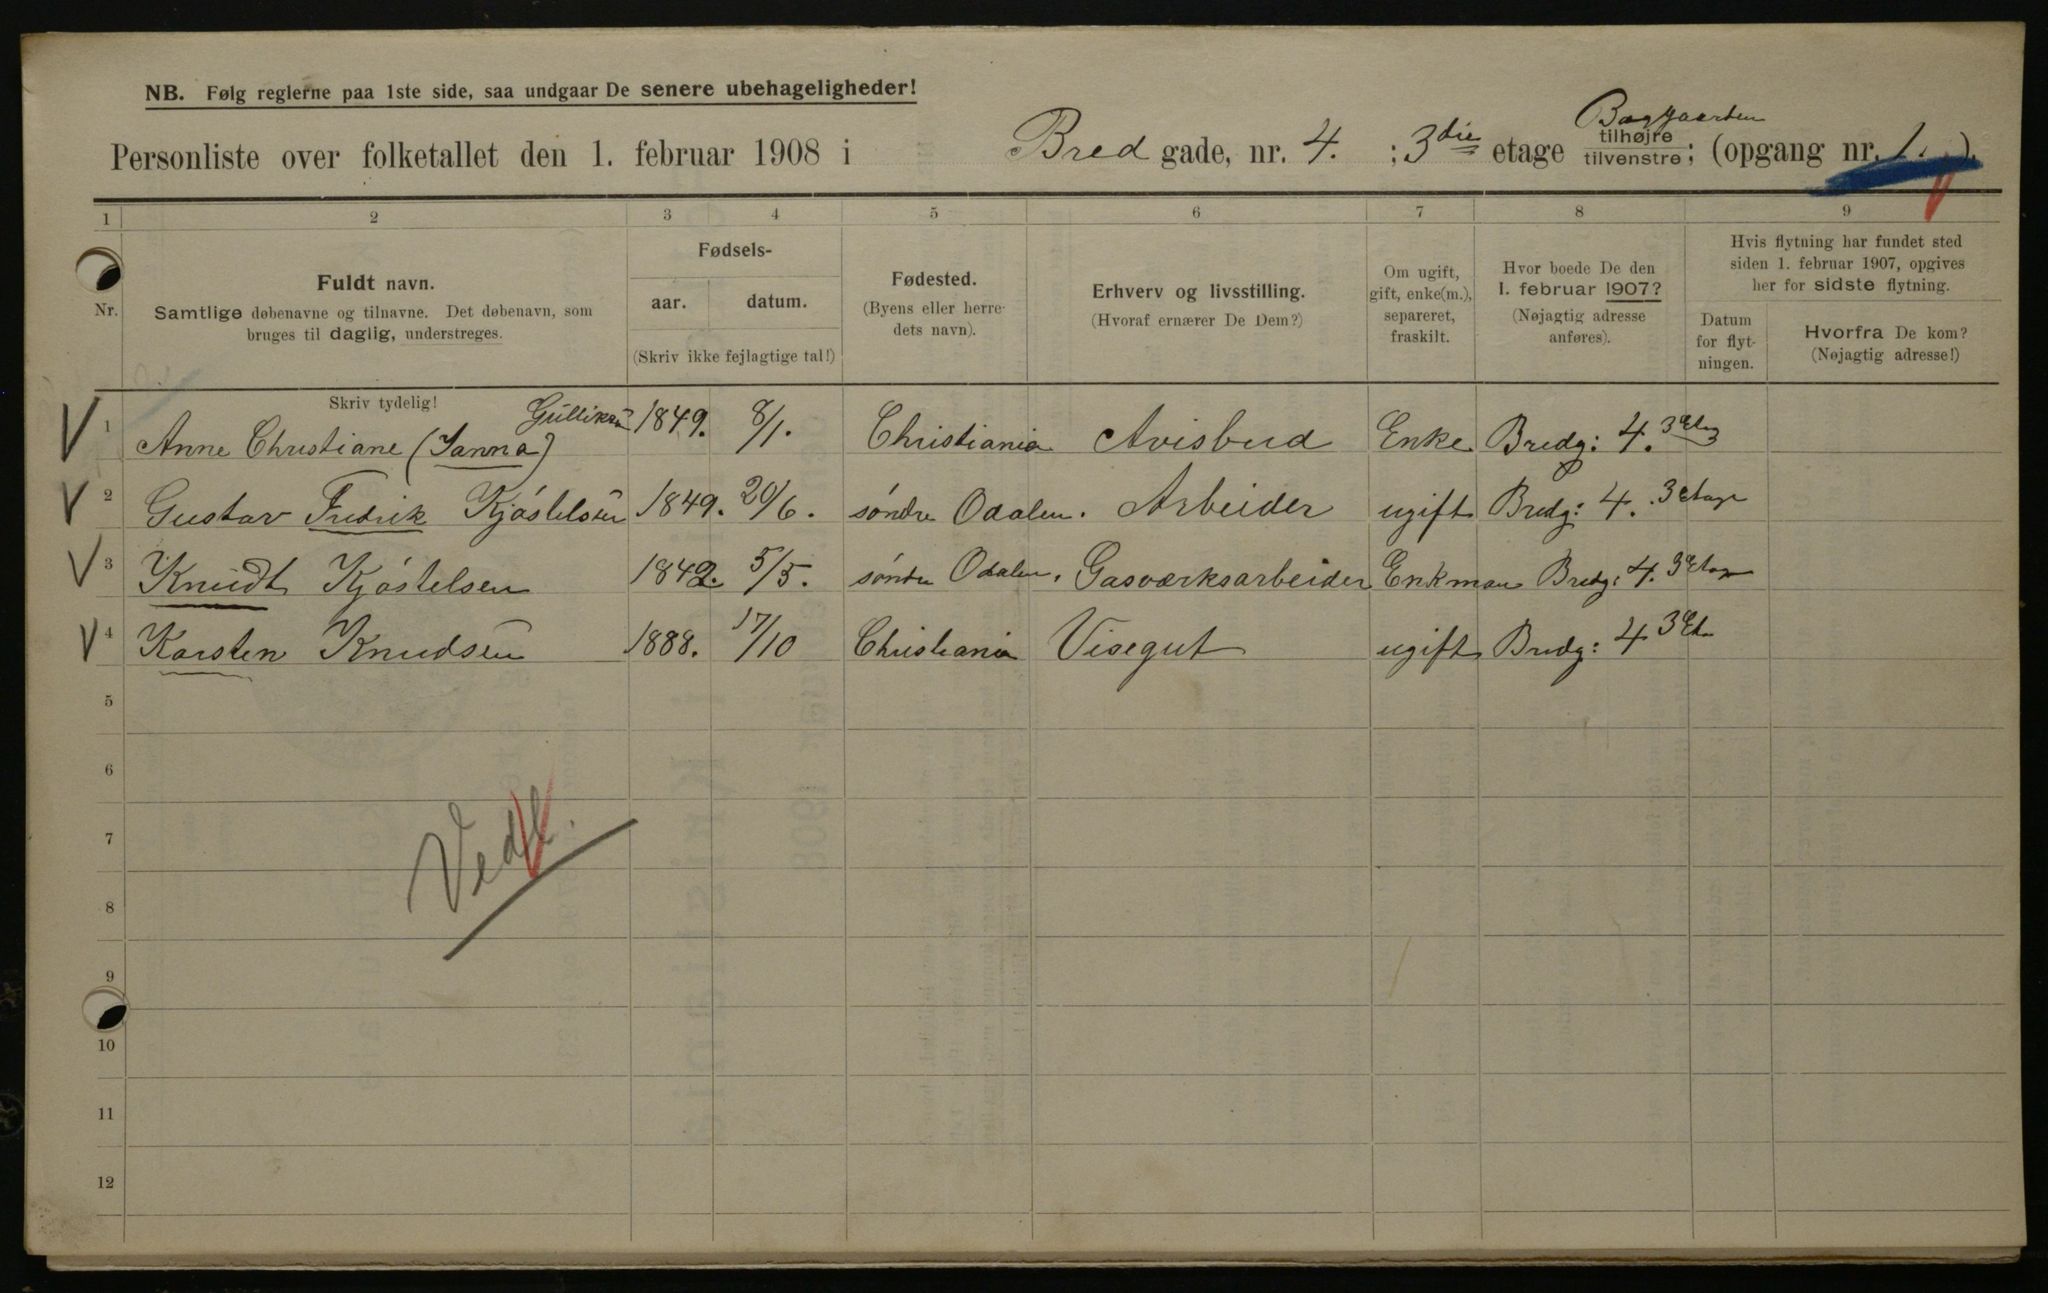 NB. Følg reglerne paa 1ste side, saa undgaar De senere ubehageligheder!
Baggaarden
Personliste over folketallet den 1. februar 1908 i Bred gade, nr. 4. ; 3die etage tilhøjre tilvenstre; (opgang nr. 1. ).
1 2 3 4 5 6 7 8 9
Nr.
Fuldt navn.
Samtlige døbenavne og tilnavne. Det døbenavn, som
bruges til daglig, understreges.
Fødsels-
aar. datum.
(Skriv ikke fejlagtige tal!)
Fødested.
(Byens eller herre-
dets navn).
Erhverv og livsstilling.
(Hvoraf ernærer De Dem?)
Om ugift,
gift, enke(m.),
separeret,
fraskilt.
Hvor boede De den
1. februar 1907?
(Nøjagtig adresse
anføres).
Hvis flytning har fundet sted
siden 1. februar 1907, opgives
her for sidste flytning.
Datum
for flyt-
ningen.
Hvorfra De kom?
(Nøjagtig adresse!)
Skriv tydelig!
1 Anne Christiane (Janna) Gulliksen 1849. 8/1. Christiania Avisbud Enke. Bredg: 4. 3 Etag
2 Gustav Fredrik Kjøstelsen 1849. 20/6. søndre Odalen. Arbeider ugift Bredg: 4. 3 etage
3 Knudt Kjøstelsen 1842. 5/5. søndre Odalen. Gasværksarbeider Enkman Bredg: 4. 3 Etage
4 Karsten Knudsen 1888. 17/10 Christiania Visegut ugift Bredg: 4 3 Et
5
6
7
8
9
10
11
12